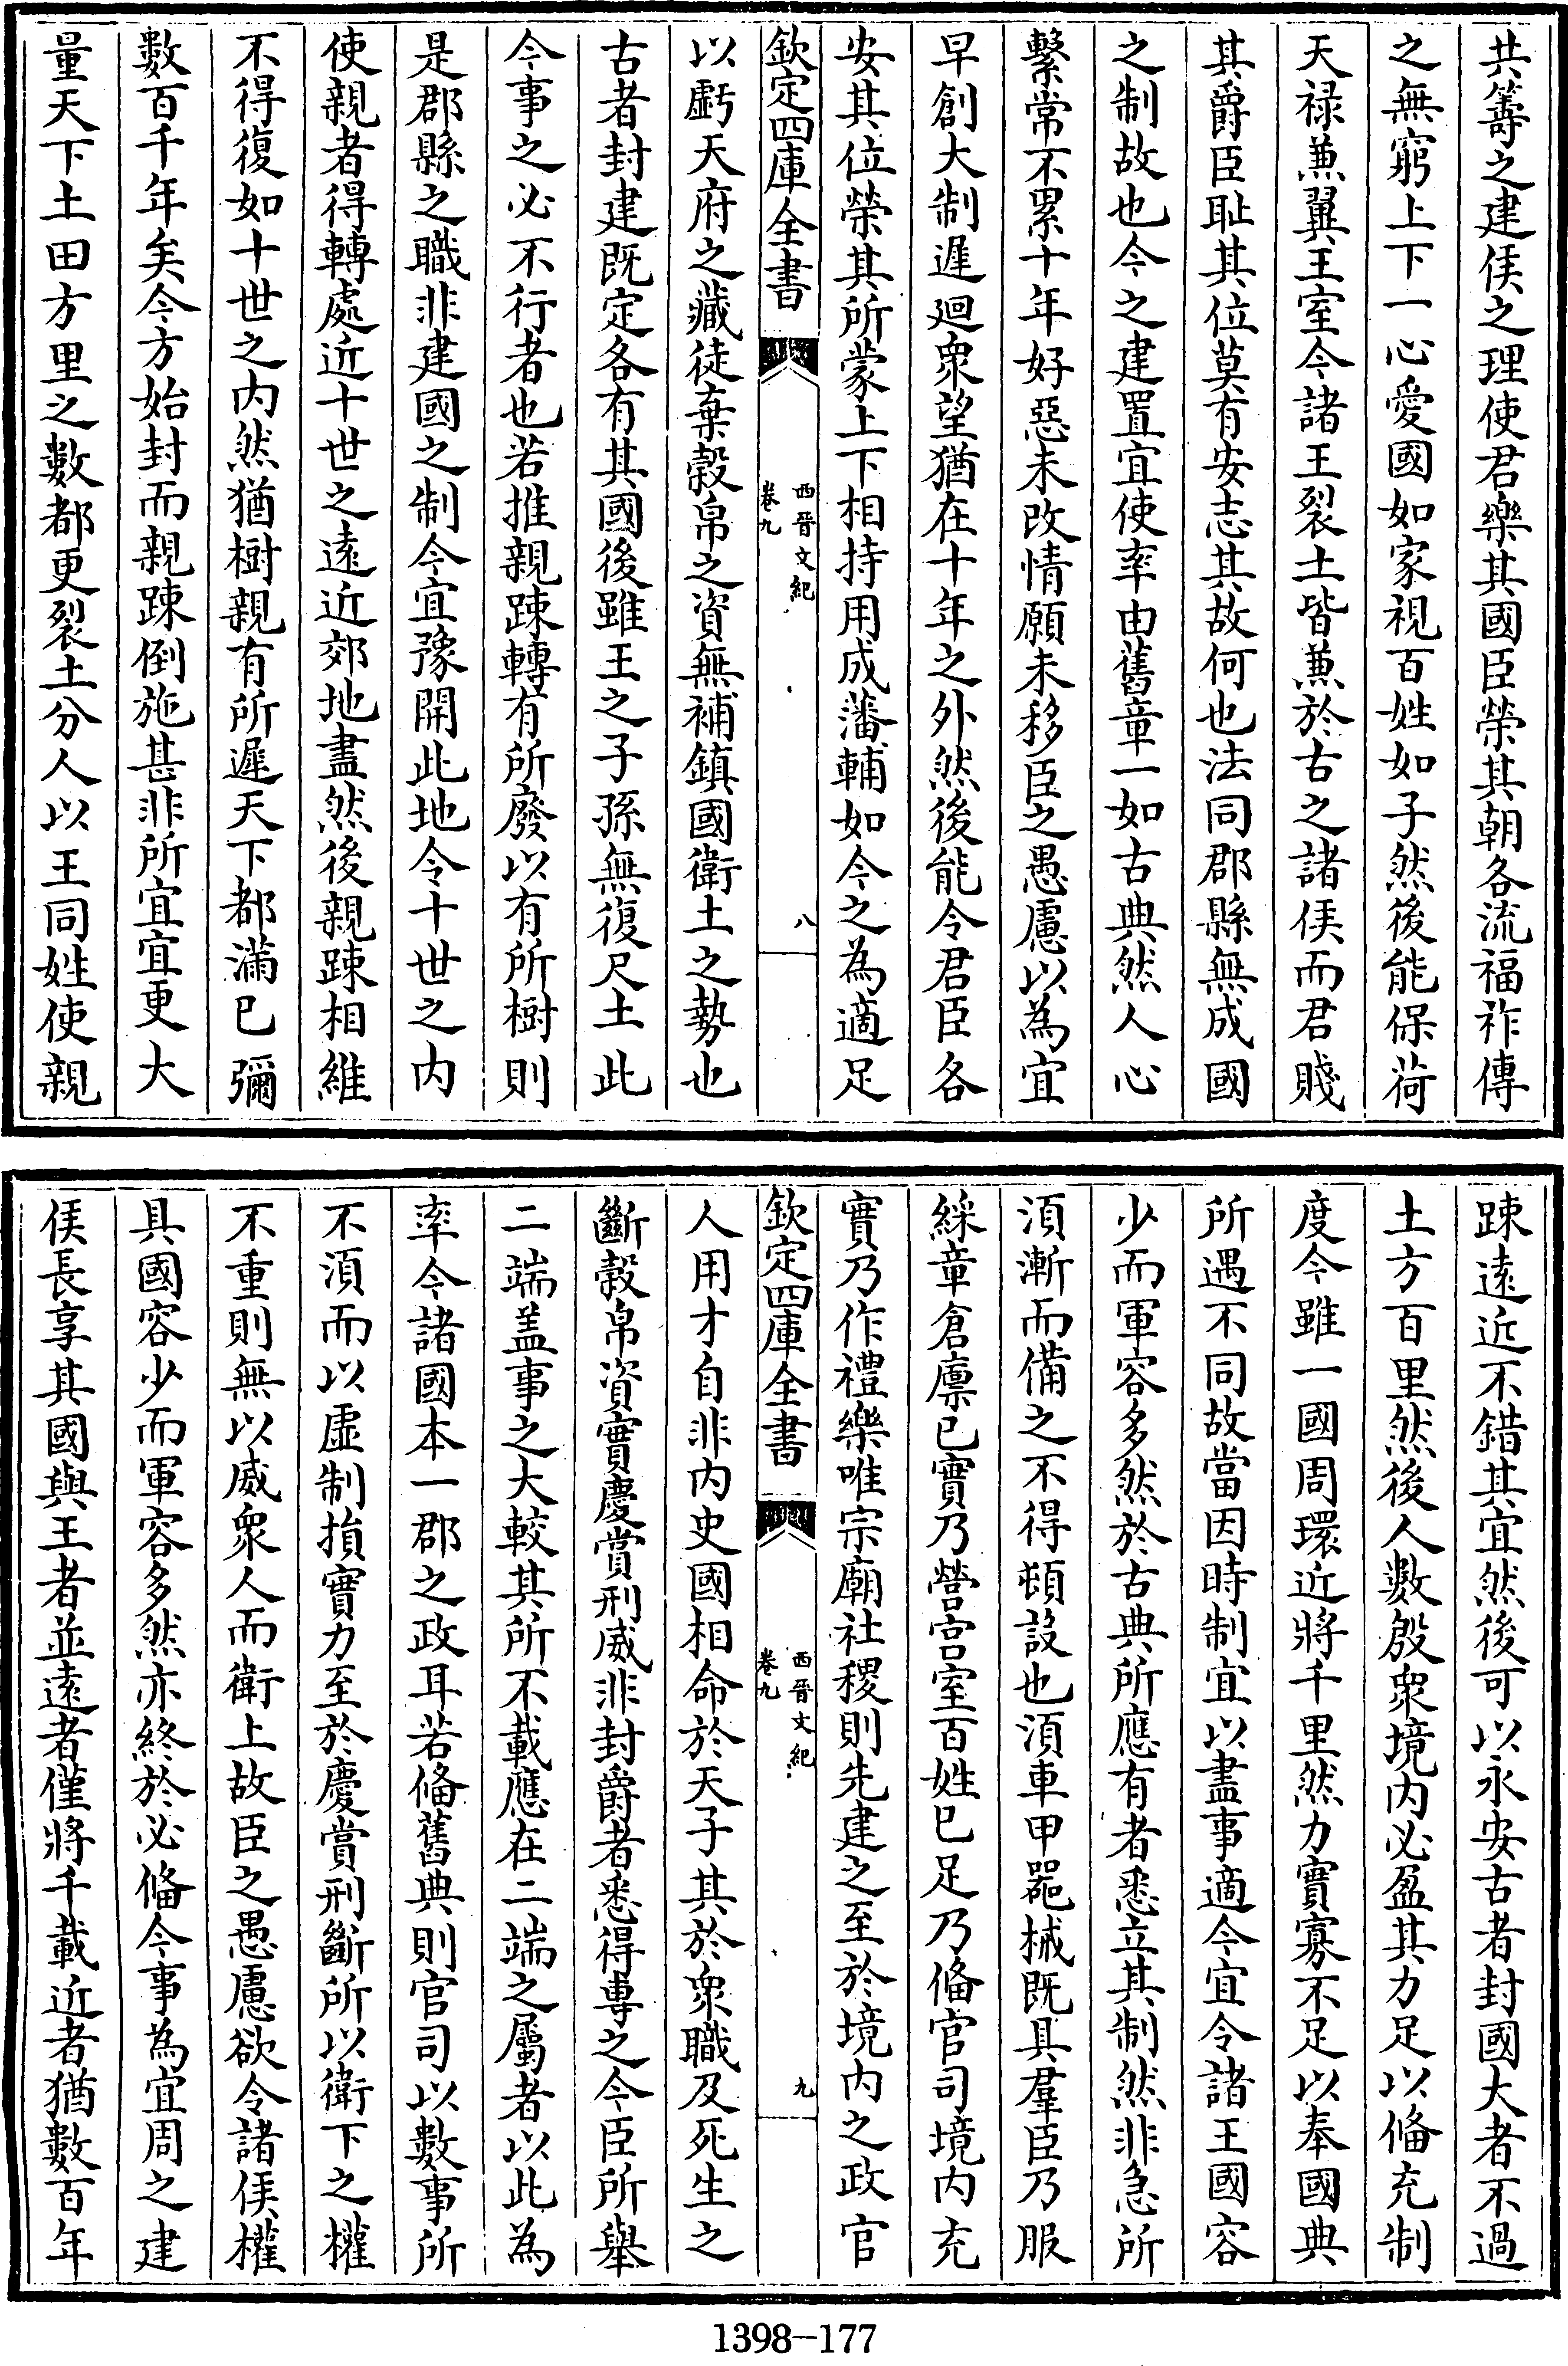 共籌之建侯之理使君樂其國臣榮其朝各流福祚傳
之無窮上下一心愛國如家視百姓如子然後能保荷
天禄兼翼王室今諸王裂土皆兼於古之諸侯而君賤
其爵臣耻其位莫有安志其故何也法同郡縣無成國
之制故也今之建置宜使率由舊章一如古典然人心
繫常不累十年好惡未改情願未移臣之愚慮以為宜
早創大制遲迴衆望猶在十年之外然後能令君臣各
安其位榮其所蒙上下相持用成藩輔如今之為適足
欽定四庫全書
西晉文紀
卷九
八
以虧天府之藏徒棄穀帛之資無補鎮國衛土之勢也
古者封建既定各有其國後雖王之子孫無復尺土此
今事之必不行者也若推親踈轉有所廢以有所樹則
是郡縣之職非建國之制今宜豫開此地令十世之内
使親者得轉處近十世之遠近郊地盡然後親踈相維
不得復如十世之内然猶樹親有所遲天下都滿已彌
數百千年矣今方始封而親踈倒施甚非所宜宜更大
量天下土田方里之數都更裂土分人以王同姓使親
踈遠近不錯其宜然後可以永安古者封國大者不過
土方百里然後人數殷衆境内必盈其力足以俻充制
度今雖一國周環近將千里然力實寡不足以奉國典
所遇不同故當因時制宜以盡事適今宜令諸王國容
少而軍容多然於古典所應有者悉立其制然非急所
須漸而備之不得頓設也須車甲器械既具羣臣乃服
綵章倉廩已實乃營宫室百姓已足乃俻官司境内充
實乃作禮樂唯宗廟社稷則先建之至於境内之政官
欽定四庫全書
西晉文紀
卷九
九
人用才自非内史國相命於天子其於衆職及死生之
斷穀帛資實慶賞刑威非封爵者悉得專之今臣所舉
二端盖事之大較其所不載應在二端之屬者以此為
率今諸國本一郡之政耳若俻舊典則官司以數事所
不須而以虛制損實力至於慶賞刑斷所以衛下之權
不重則無以威衆人而衛上故臣之愚慮欲令諸侯權
具國容少而軍容多然亦終於必俻今事為宜周之建
侯長享其國與王者並遠者僅將千載近者猶數百年
1398-177